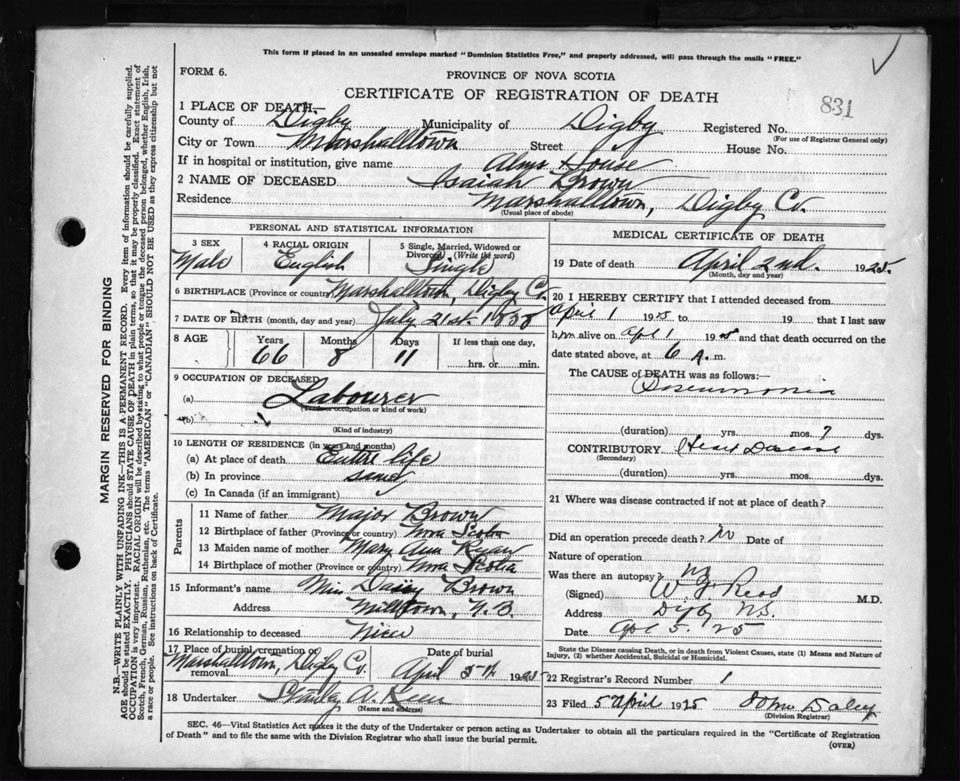 This form if placed in an unsealed envelope marked "Dominion Statistics Free," and properly addressed, will pass through the mails "FREE."
FORM 6.
PROVINCE OF NOVA SCOTIA
CERTIFICATE OF REGISTRATION OF DEATH
831
1 PLACE OF DEATH—
County of Digby Municipality of Digby Registered No.
(For use of Registrar General only)
City or Town Marshalltown Street House No.
If in hospital or institution, give name Alms House
2 NAME OF DECEASED Isaiah Brown
Residence Marshalltown, Digby Co.
(Usual place of abode)
PERSONAL AND STATISTICAL INFORMATION
3 SEX Male
4 RACIAL ORIGIN English
5 Single, Married, Widowed or Divorced (Write the word) Single
6 BIRTHPLACE (Province or country) Marshalltown, Digby Co.
7 DATE OF BIRTH (month, day and year) July 21st. 1858
8 AGE Years Months Days If less than one day,
66 8 11 hrs. or min.
9 OCCUPATION OF DECEASED
(a) Labourer
(Trade or occupation or kind of work)
(b)
(Kind of industry)
10 LENGTH OF RESIDENCE (in years and months)
(a) At place of death Entire life
(b) In province
(c) In Canada (if an immigrant)
Parents
11 Name of father Major Brown
12 Birthplace of father (Province or country) Nova Scotia
13 Maiden name of mother Mary Ann Ryan
14 Birthplace of mother (Province or country) Nova Scotia
15 Informant's name Miss Daisy Brown
Address Milltown, N.B.
16 Relationship to deceased Niece
17 Place of burial, cremation or removal Marshalltown, Digby Co.
Date of burial April 5th 1925
18 Undertaker Stanley A.
(Name and address)
MEDICAL CERTIFICATE OF DEATH
19 Date of death April 2nd. 1925.
(Month, day and year)
20 I HEREBY CERTIFY that I attended deceased from
April 1 1925 to 19 that I last saw
him alive on Apl 1 1925 and that death occurred on the
date stated above, at 6 A. m.
The CAUSE of DEATH was as follows:—
Pneumonia
(duration) yrs. mos. 7 dys.
CONTRIBUTORY Heart Disease
(Secondary)
(duration) yrs. mos. dys.
21 Where was disease contracted if not at place of death?
Did an operation precede death? No Date of
Nature of operation
Was there an autopsy? No
(Signed) M.D.
Address Digby NS.
Date Apl 5. '25
State the Disease causing Death, or in death from Violent Causes, state (1) Means and Nature of
Injury, (2) whether Accidental, Suicidal or Homicidal.
22 Registrar's Record Number 1
23 Filed 5 April 1925 John Daley
(Division Registrar)
SEC. 46—Vital Statistics Act makes it the duty of the Undertaker or person acting as Undertaker to obtain all the particulars required in the "Certificate of Registration
of Death" and to file the same with the Division Registrar who shall issue the burial permit.
(OVER)
MARGIN RESERVED FOR BINDING
N.B.—WRITE PLAINLY WITH UNFADING INK—THIS IS A PERMANENT RECORD. Every item of information should be carefully supplied.
AGE should be stated EXACTLY. PHYSICIANS should STATE CAUSE OF DEATH in plain terms, so that it may be properly classified. Exact statement of
OCCUPATION is very important. RACIAL ORIGIN will be described by stating to what people or tongue the deceased person belonged, whether English, Irish,
Scotch, French, German, Russian, Ruthenian, etc. The terms "AMERICAN" or "CANADIAN" SHOULD NOT BE USED as they express citizenship but not
a race or people. See instructions on back of Certificate.